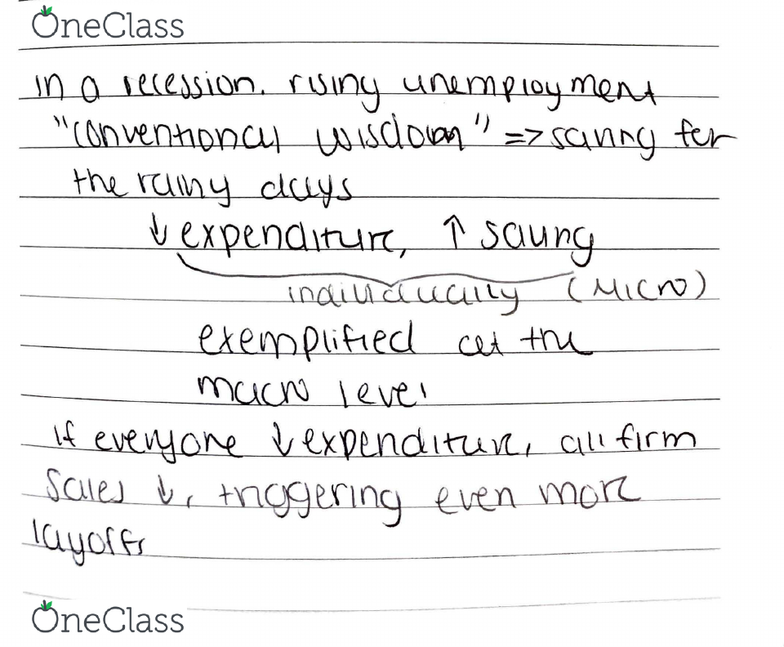 OneClass
in a recession. rising unemployment
"conventional wisdom" => saving for
the rainy days
↓ expenditure, ↑ saving
individually (Micro)
exemplified at the
macro level
if everyone ↓ expenditure, all firm
sales ↓, triggering even more
layoffs
OneClass